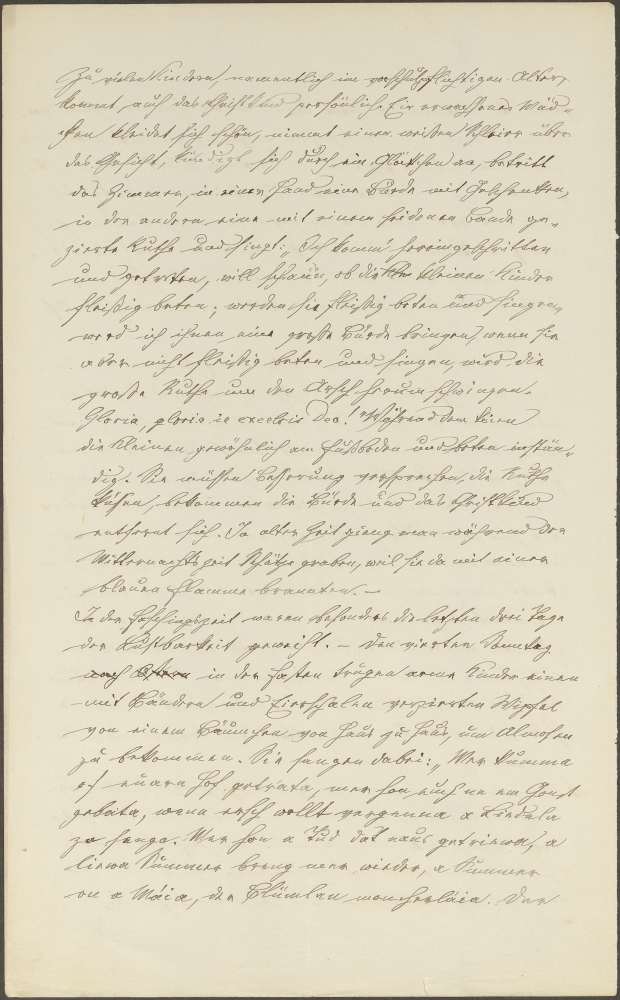 Zu vielen Kindern, namentlich im vorschulpflichtigen Alter,
kommt auch das Christkind persönlich. Ein erwachsenes Mäd-
chen kleidet sich schön, nimmt einen weißen Schleier über
das Gesicht, kündigt sich durch ein Glöckchen an, betritt
das Zimmer, in einer Hand eine Bürde mit Geschenken,
in der andern eine mit einem seidenen Bande ge-
zierte Ruthe und singt: „Ich komm' hereingeschritten
und getreten, will schau'n, ob die kleinen Kinder
fleißig beten; werden sie fleißig beten und singen,
werd ich ihnen eine große Bürde bringen, wenn sie
aber nicht fleißig beten und singen, wird die
große Ruthe um den Arsch herum schwingen.
Gloria, gloria in excelsis Deo! Während dem knien
die Kleinen gewöhnlich am Fußboden und beten instän-
dig. Sie müssen Besserung versprechen, die Ruthe
küssen, bekommen die Bürde und das Christkind
entfernt sich. In alter Zeit gieng man während der
Mitternachtszeit Schätze graben, weil sie da mit einer
blauen Flamme brannten. –
In der Faschingszeit waren besonders die letzten drei Tage
der Lustbarkeit geweiht. – Den vierten Sonntag
nach Ostern in der Fasten trugen arme Kinder einen
mit Bändern und Eierschalen verzierten Wipfel
von einem Bäumchen von Haus zu Haus, um Almosen
zu bekommen. Sie sangen dabei: „Mer kumma
ei euern Hof getrata, mer hon euch ne em
gebata, wenn ersch wollt vergenna a Liedula
zo senga. Mer hon a Tud naus getriewa, a
liewa Summer breng mer wieder, a Summer
on a Mäia, der Blümlan moncherläia. Der